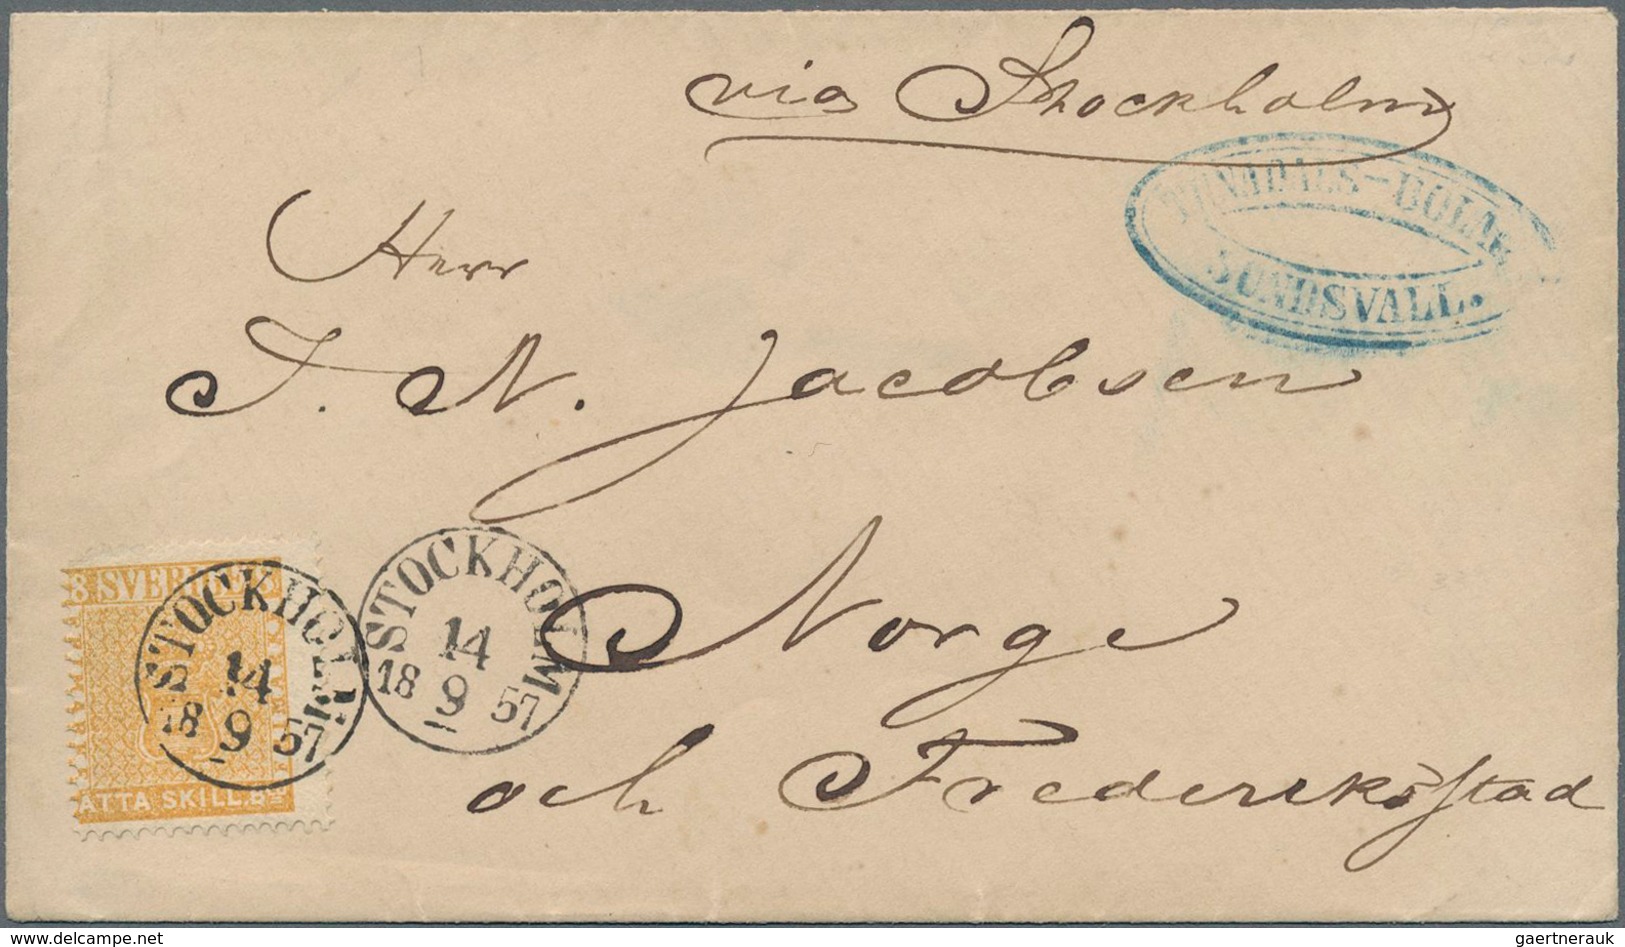 via Stockholm
TUNADALS-BOLAG
SUNDSVALL.
Herr
J. N. Jacobsen
Norge
och Frederiksstad
8 SVERIGE 8
ÅTTA SKILL. Bco
STOCKHOLM
14
18 9 57
STOCKHOLM
14
18 9 57
delcampe.net
gaertnerauk